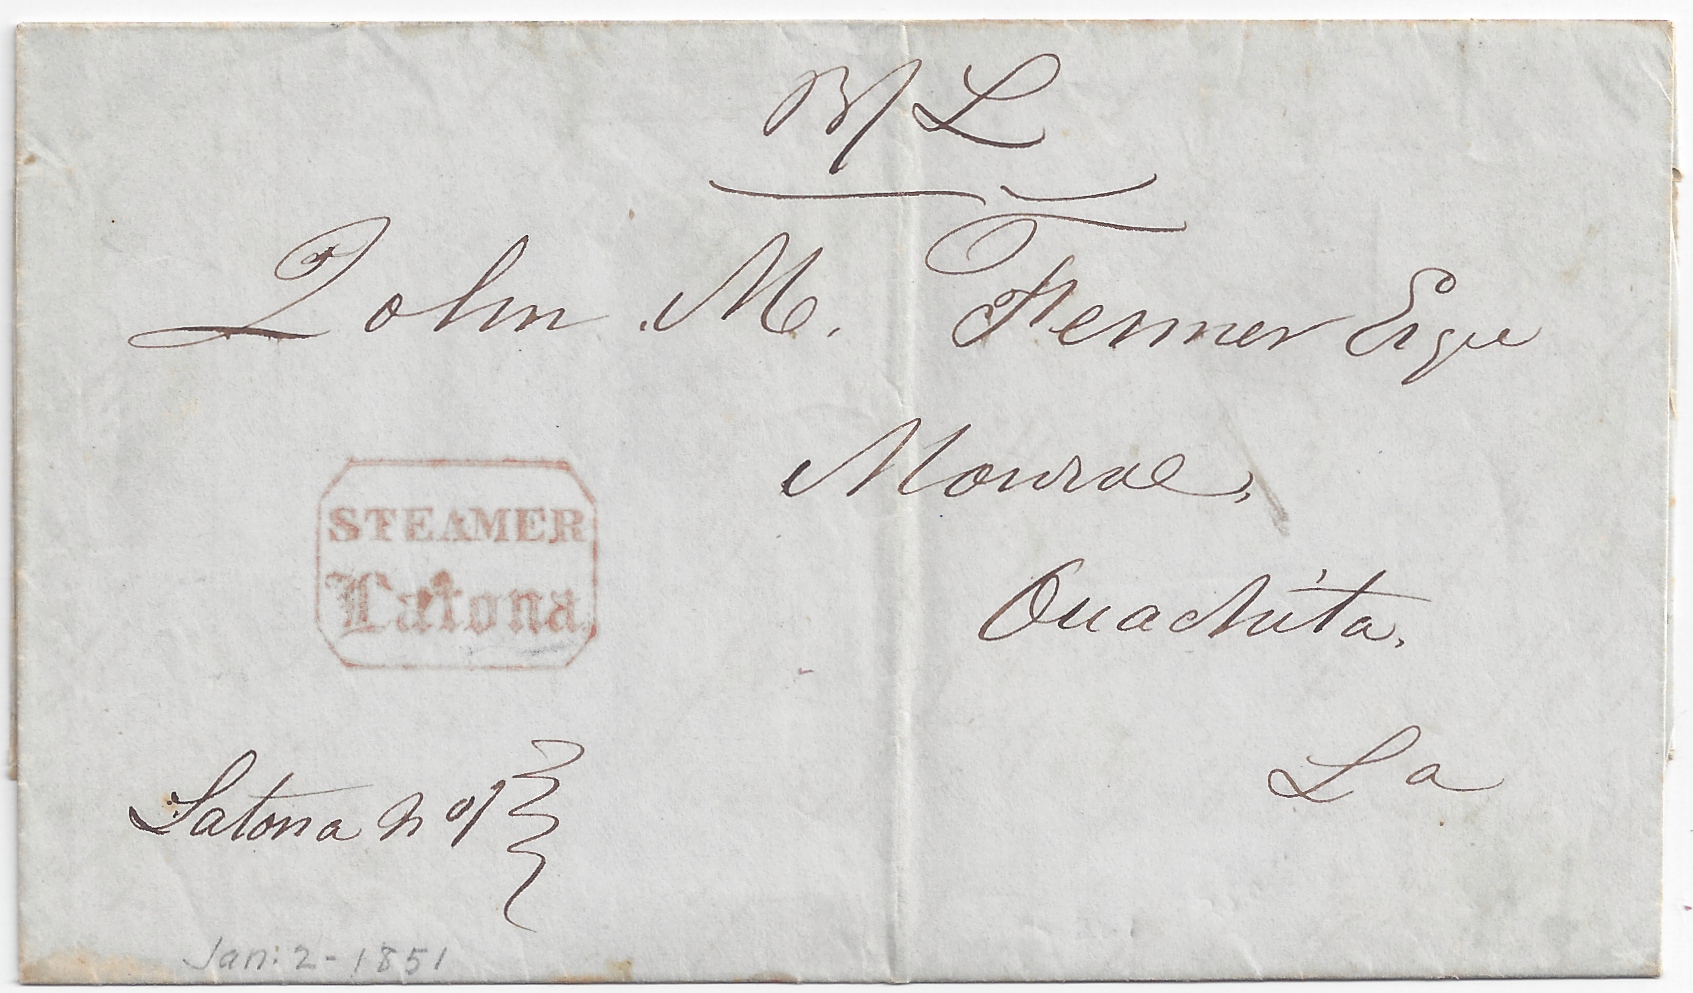 B/L
John M. Fenner Esqre
Monroe,
Ouachita,
La
STEAMER
Latona.
Latona
Jan: 2 - 1851